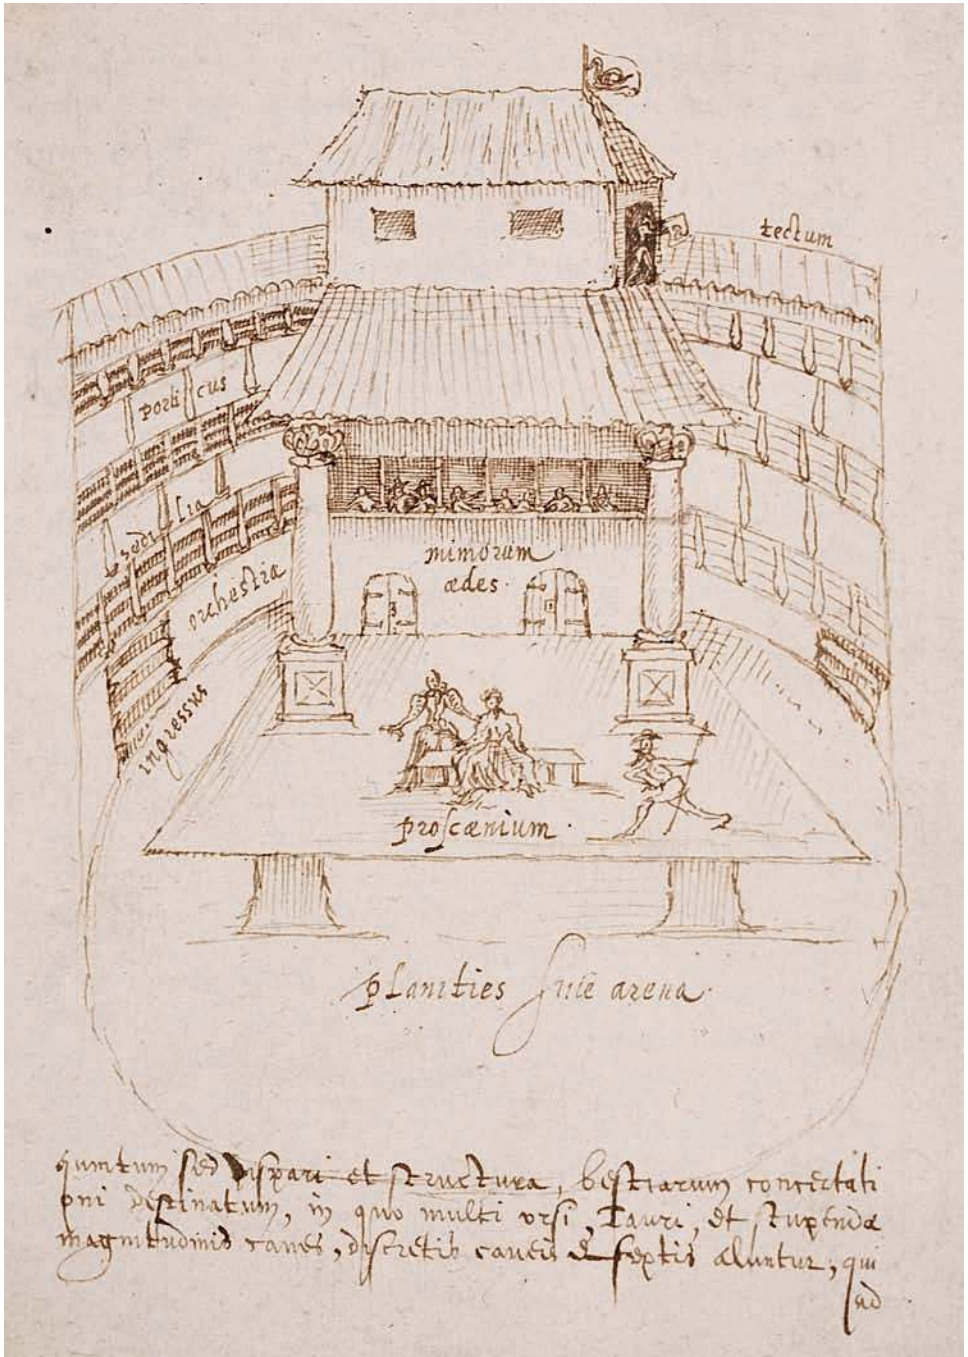 tectum
porticus
sedilia
orchestra
ingressus
mimorum
ædes.
proscænium.
planities sive arena.
quintum sed dispari et structura, bestiarum concertati
oni destinatum, in quo multi ursi, Tauri, et stupendæ
magnitudinis canes, discretis caveis & septis aluntur, qui
ad